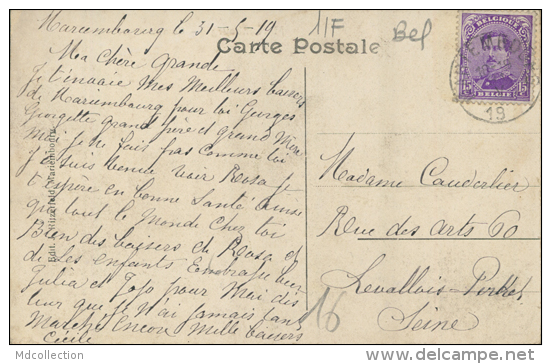 Mariembourg le 31-5-19
11F
Bel
Carte Postale
BELGIQUE
15 15
BELGIE
19
Ma chère Grande
Je t'envoie Mes Meilleurs baisers
de Mariembourg pour toi Georges
Georgette grand père et grand Mère
Moi je ne fais pas comme toi
je suis venue voir Rosa je
t'espère en bonne Santé ainsi
que tout le Monde chez toi
Bien des baisers de Rosa et
de les enfants Embrasse bien
Julia et pour Moi dis
leur que je n'ai jamais tant
Marché Encore Mille baisers
Cécile
Mariembourg
Madame Cauderlier
Rue des arts 60
Levallois-Perret
Seine
16
MDcollection
www.delcampe.net